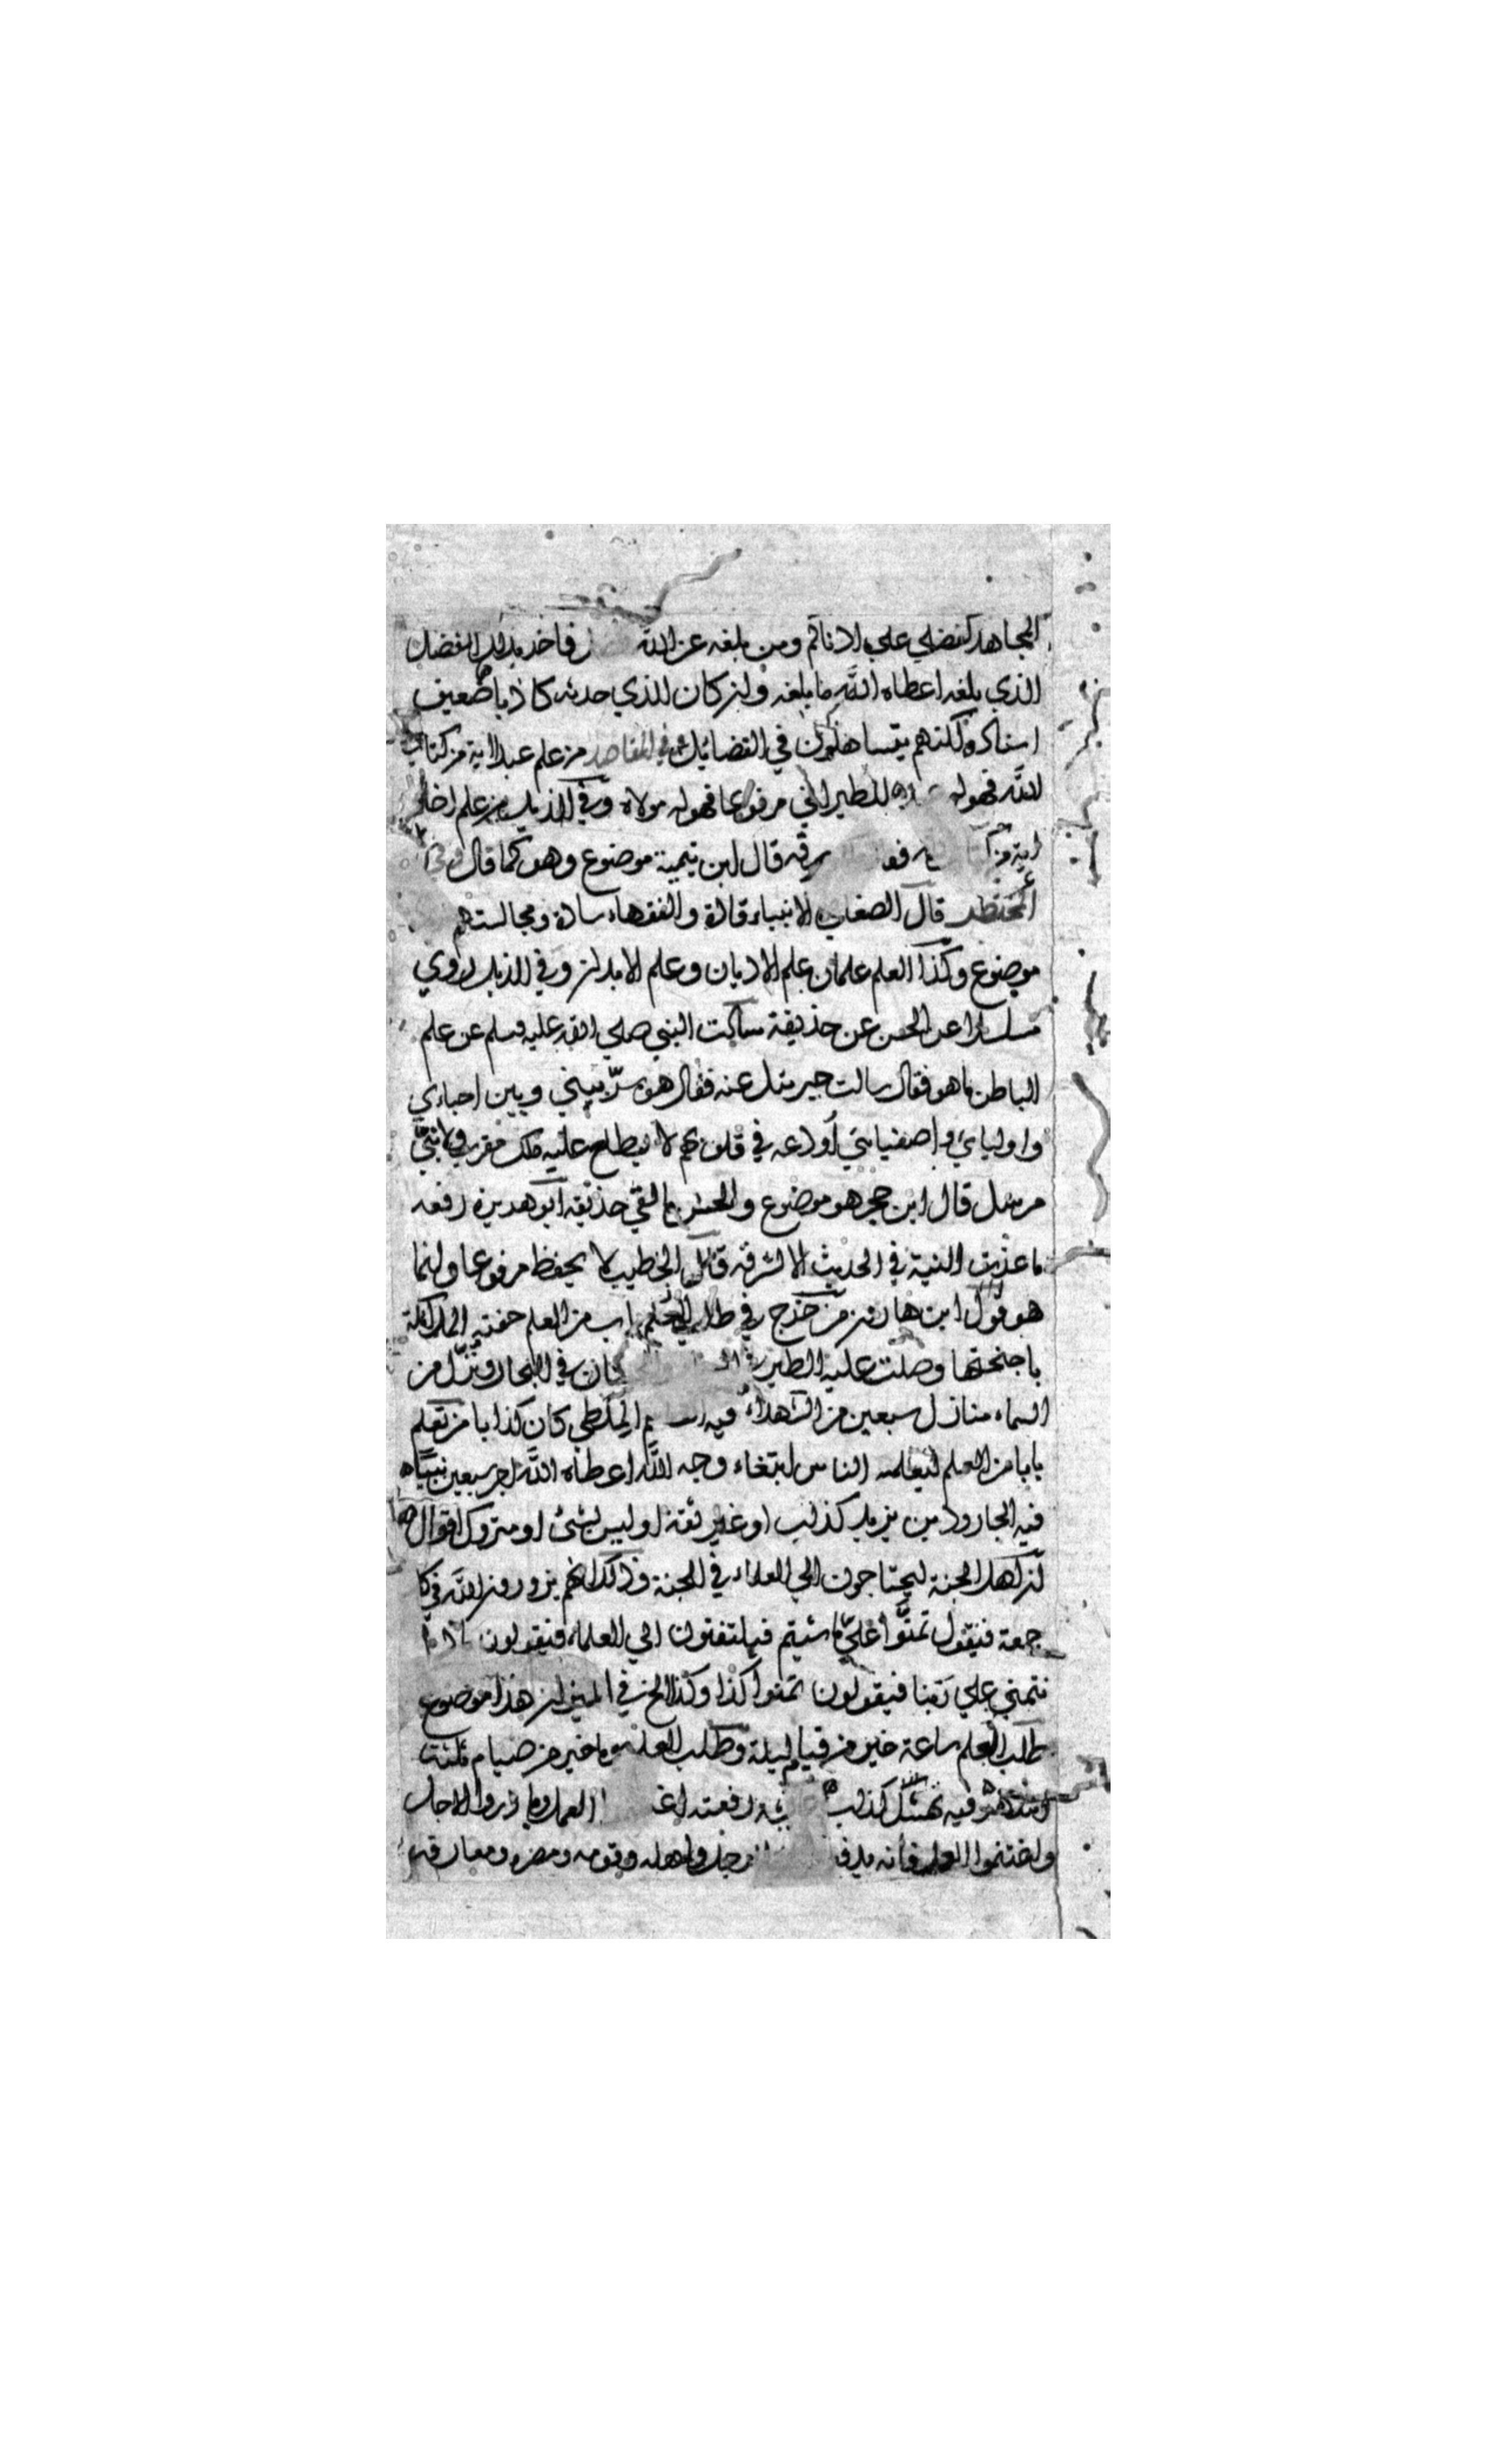 المجاهد كفضلي علي ادناكم ومن بلغه عن الله فاخذ بذلك الفضل
الذي بلغه اعطاه الله ما بلغه وان كان الذي حدثه كاذبا ضعيف
اسناده ولكنهم يتساهلون في الفضائل في المقاصد من علم عبدا اية من كتاب
الله فهو له للطبراني مرفوعا فهو له مولاه وفي الذيل من علم اخاه
اية من قال ابن تيمية موضوع وهو كما قال وفي
المختصر قال الصغاني الانبياء قادة والفقهاء سادة ومجالستهم
موضوع وكذا العلم علمان علم الاديان وعلم الابدان وفي الذيل روي
مسلسلا عن الحسن عن حذيفة سالت النبي صلي الله عليه وسلم عن علم
الباطن ما هو فقال سالت جبريئل عنه فقال هو سر بيني وبين احبائي
واوليائي واصفيائي أودعه في قلوبهم لا يطلع عليه ملك مقرب ولا نبي
مرسل قال ابن حجر هو موضوع والحسن ما لقي حذيفة ابو هريرة رفعه
ما عزت النية في الحديث الا لشرفه قال الخطيب لا يحفظ مرفوعا وانما
هو قول ابن هارون من خرج في طلب باب من العلم حفته الملائكة
باجنحتها وصلت عليه الطير في البحار ونزل من
السماء منازل سبعين من الشهداء فيه الملطي كان كذابا من تعلم
بابا من العلم ليعلمه الناس ابتغاء وجه الله اعطاه الله اجر سبعين نبيا
فيه الجارود بن يزيد كذاب او غير ثقة او ليس بشئ او متروك اقوال
ان اهل الجنة ليحتاجون الي العلماء في الجنة وذلك انهم يزورون الله في كل
جمعة فيقول تمنوا علي ما شئتم فيلتفتون الي العلماء فيقولون
نتمني علي ربنا فيقولون تمنوا كذا وكذا الخ في الميزان هذا موضوع
طلب العلم ساعة خير من قيام ليلة وطلب العلم يوما خير من صيام ثلثة
فيه نهشل كذاب رفعته العمل وبادروا الاجل
واغتنموا العلم فانه يدفع رجل واهله وقومه ومصره ومعارفه